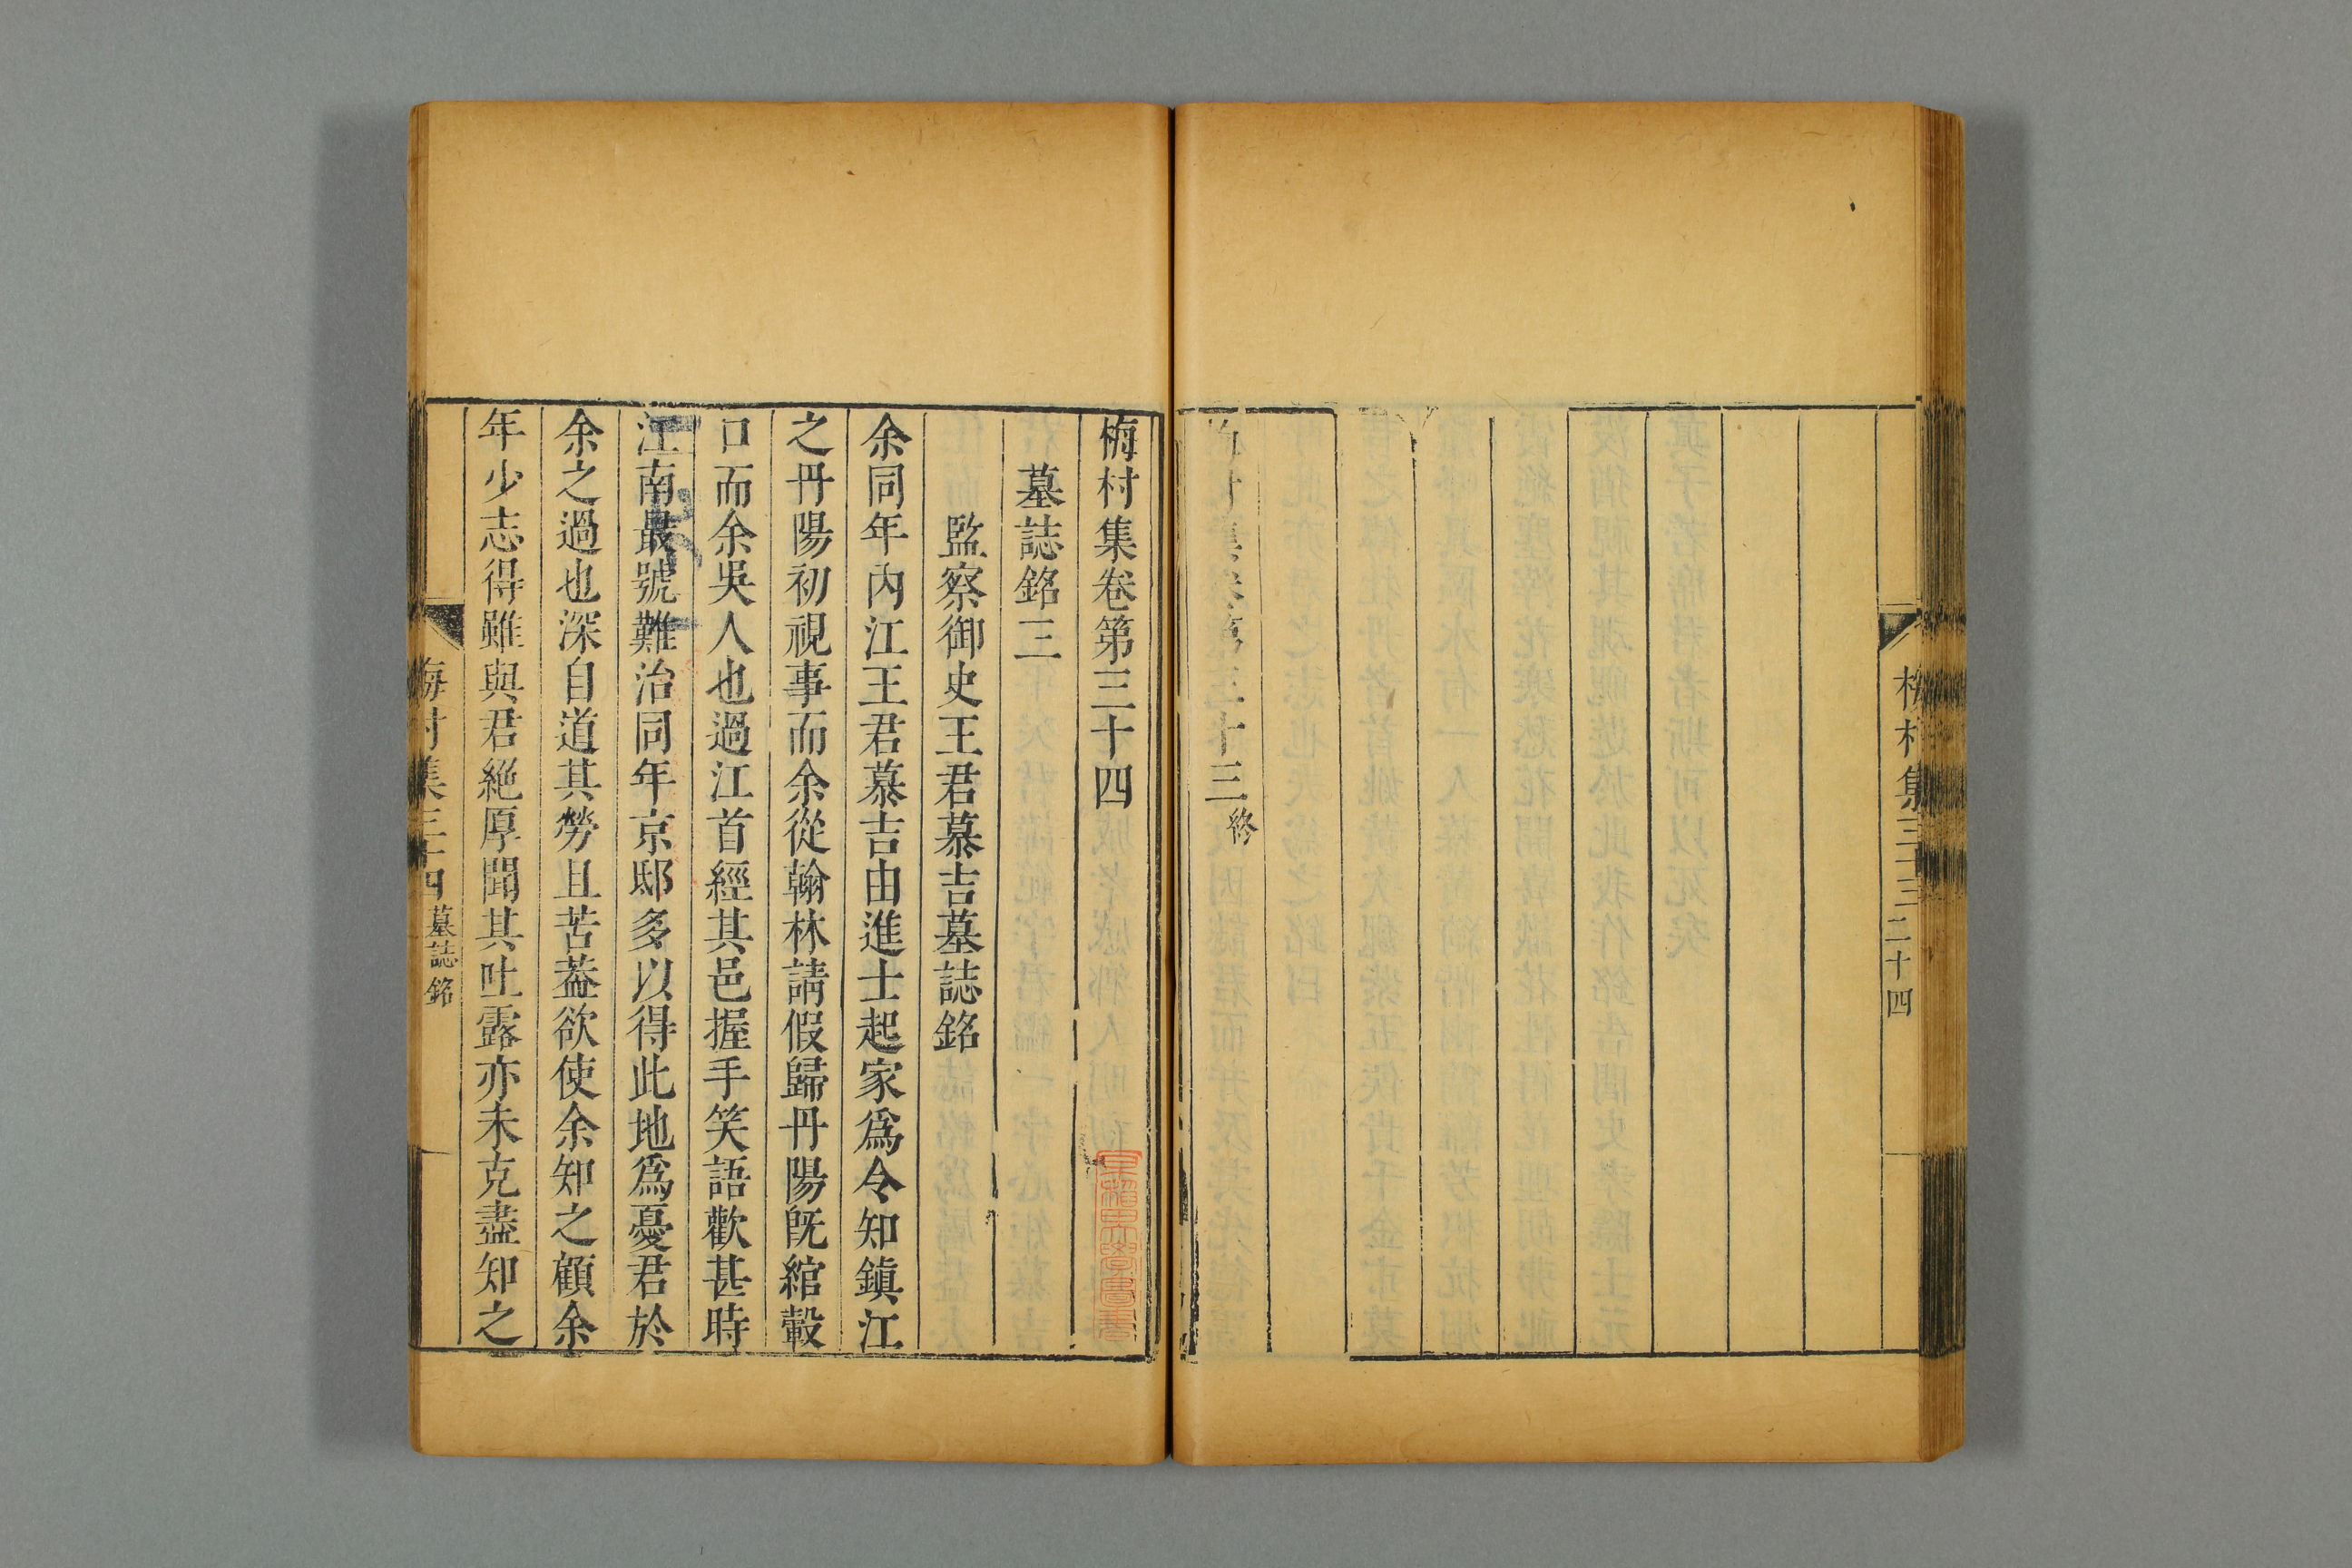 梅村集三十三 二十四
梅村集卷第三十三終
梅村集卷第三十四
墓誌銘三
監察御史王君慕吉墓誌銘
余同年內江王君慕吉由進士起家爲令知鎮江
之丹陽初視事而余從翰林請假歸丹陽旣綰轂
口而余吳人也過江首經其邑握手笑語歡甚時
江南最號難治同年京邸多以得此地爲憂君於
余之過也深自道其勞且苦葢欲使余知之顧余
年少志得雖與君絕厚聞其吐露亦未克盡知之
梅村集三十四 墓誌銘